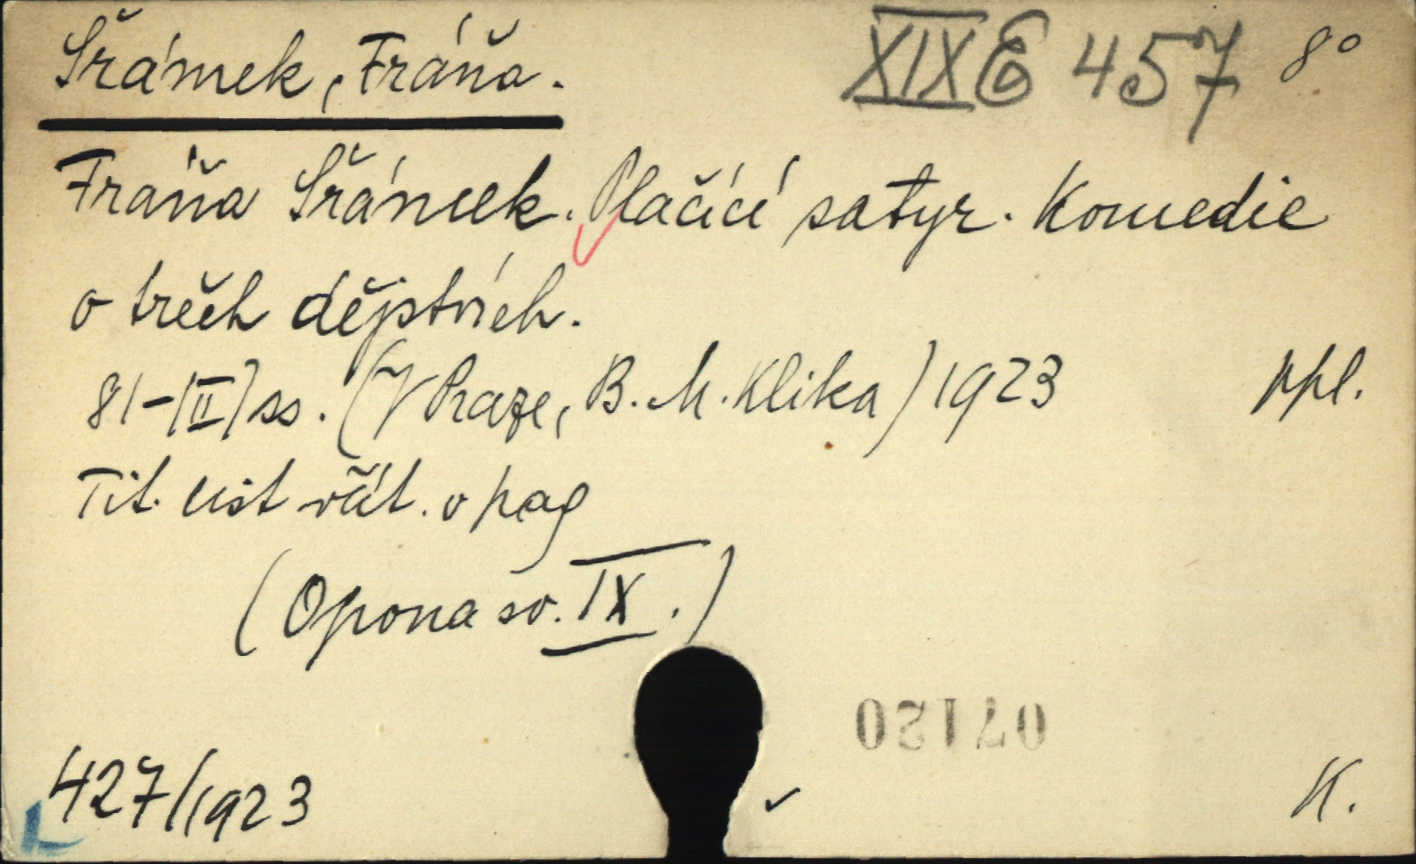 Šrámek, Fráňa.
XIX E 457 8°
Fráňa Šrámek. Plačící satyr. Komedie
o třech dějstvích.
81-[II] ss. (V Praze, B. M. Klika) 1923 ppl.
Tit. list včít. v pag
(Opona sv. IX.)
07120
427/1923
K.
L